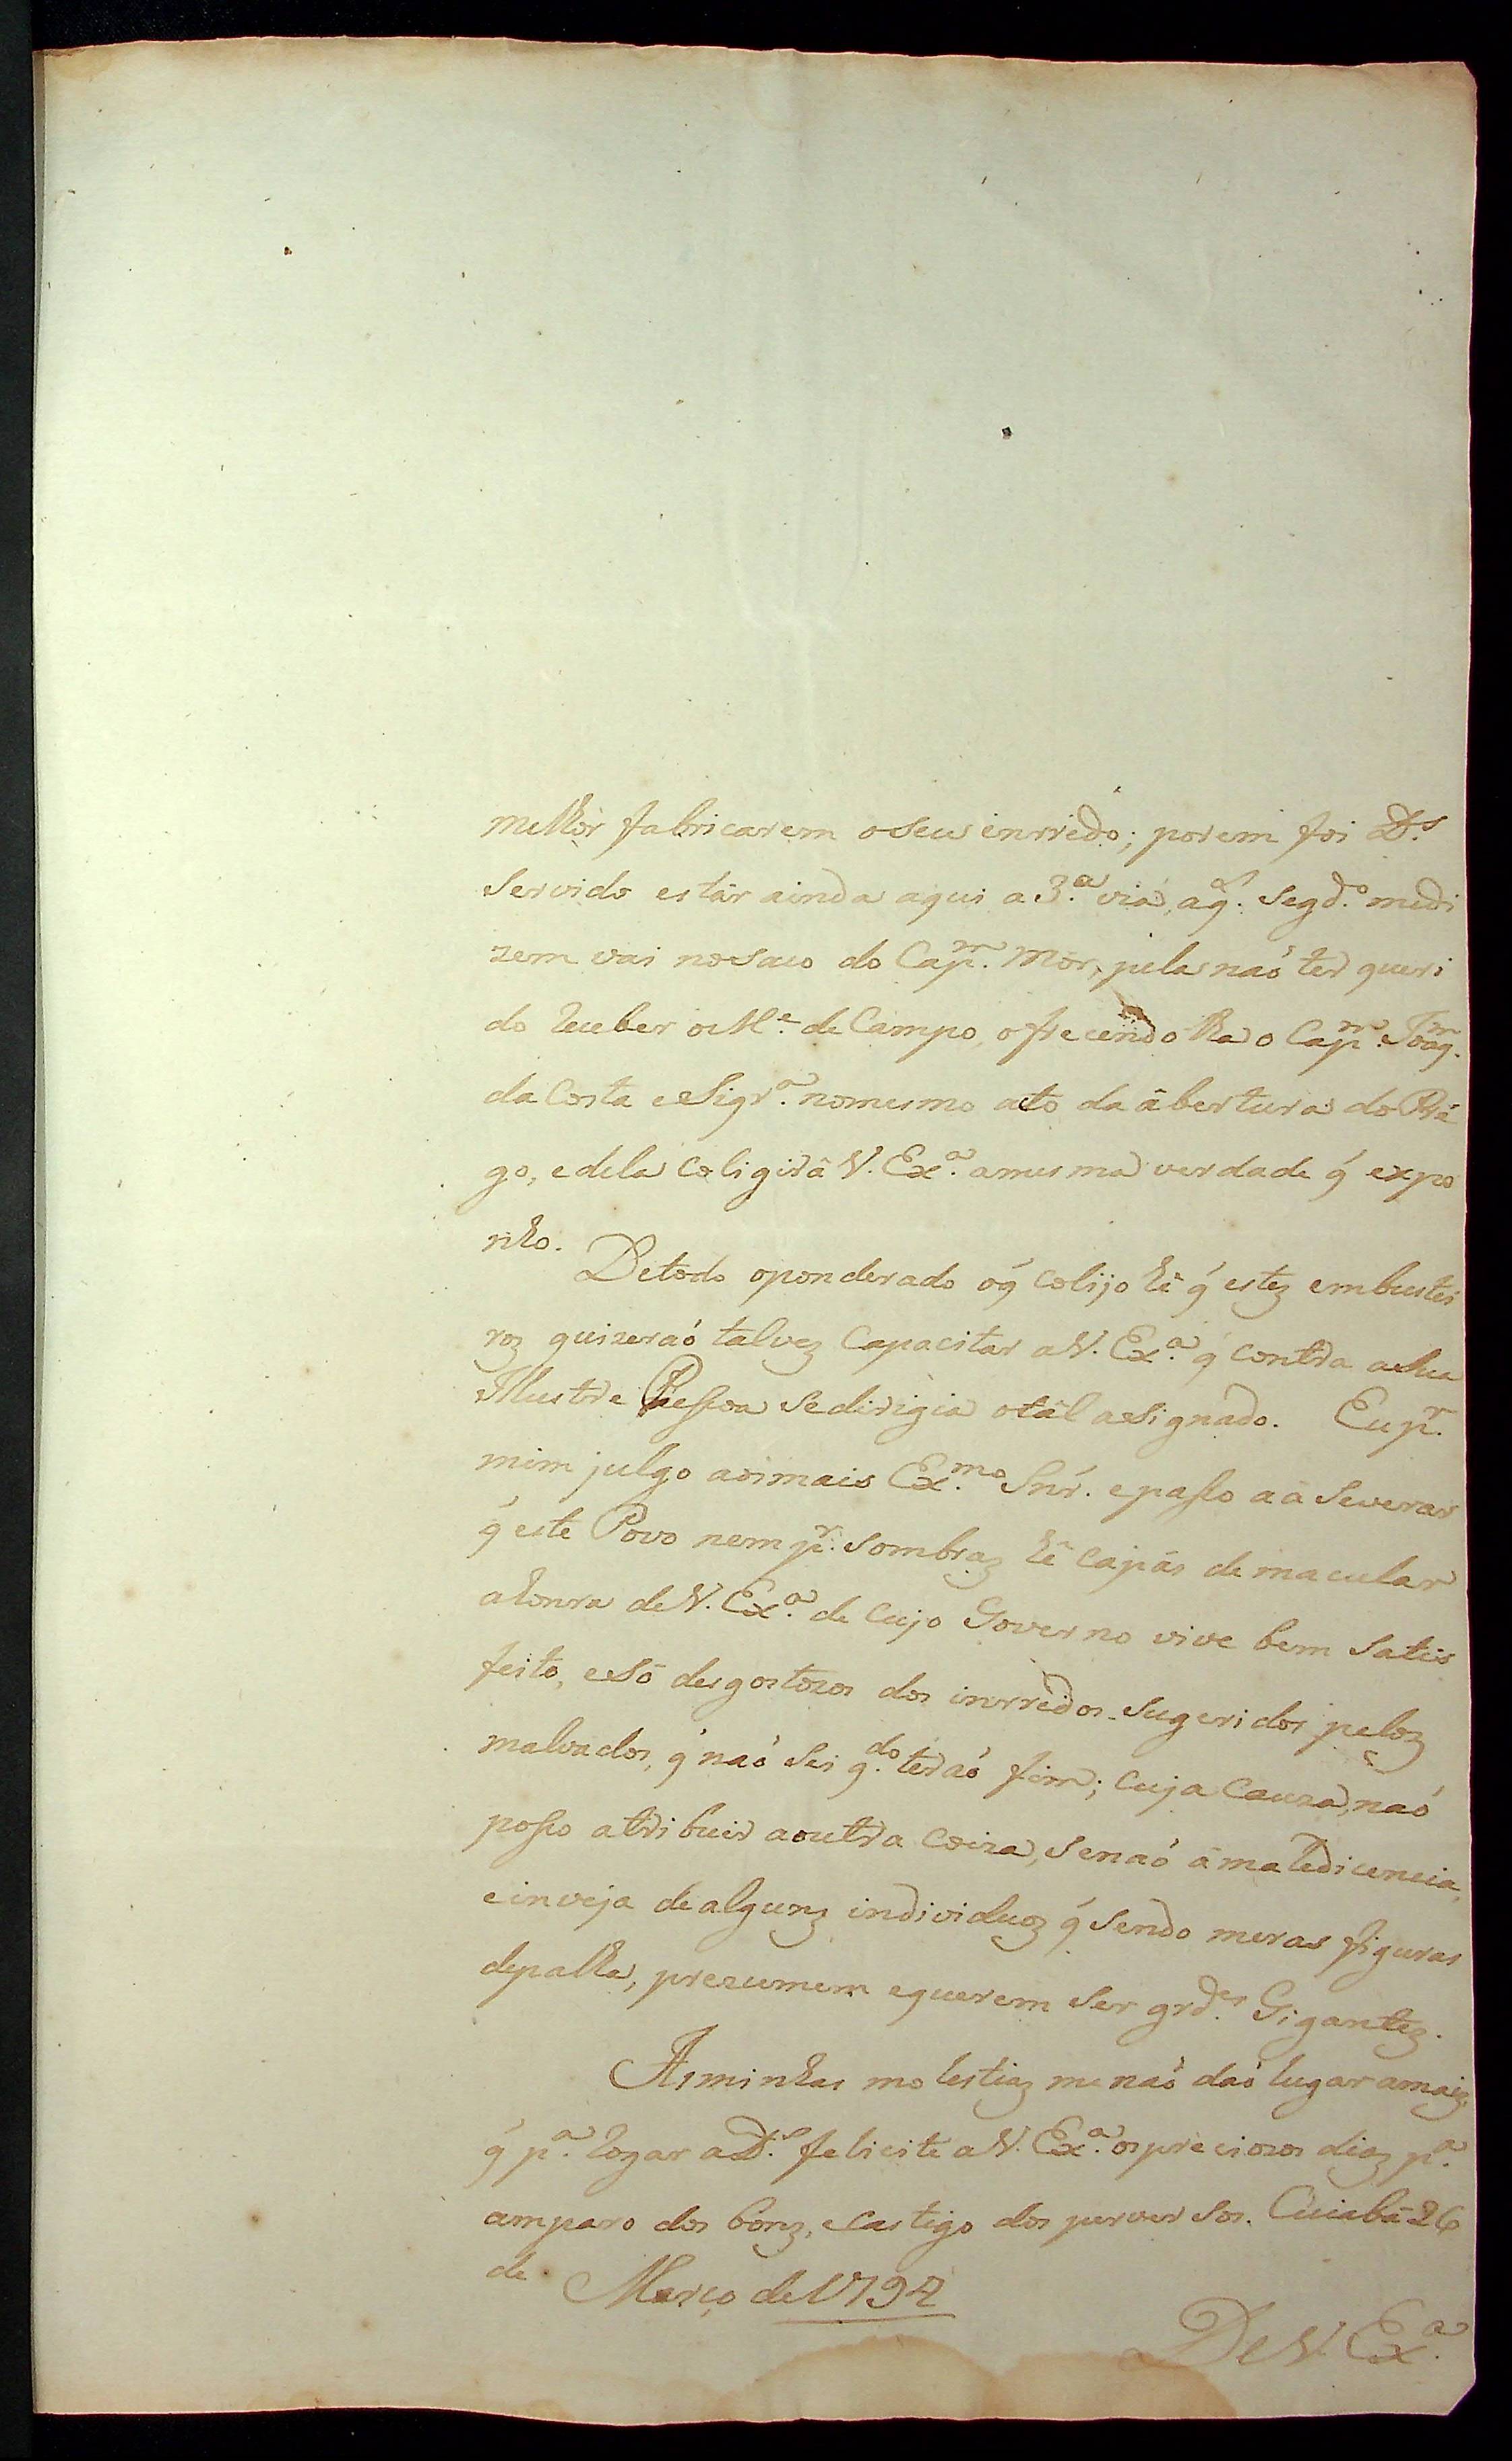 melhor fabricarem o seu inrredo; porem foi D.s
servido estâr ainda aqui a 3.a via, a q.l segd.o medi
zem vai no saco do Cap.m Mór, pelas naó ter queri
do receber o M.e de Campo, ofrecendo lha o Cap.m Joaq.m
da Costa e Siqr.a no mesmo acto da âbertura do Pré
go, e dela coligirâ V. Ex.a a mesma verdade q́ expo
nho.
De todo o ponderado o q́ colijo hê q́ estez embustei
roz quizeraó talvez capacitar a V. Ex.a q́ contra a sua
Illustre Pessoa se dirigia o tâl asignado. Eu p.r
mim julgo asimais Ex.mo Snr̃. e passo a aseverar
q́ este Povo nem p.r sombraz hê capâs de macular
a honra de V. Ex.a de cujo Governo vive bem satis
feito, e só desgostozos dos inrredos sugeridos peloz
malvados, q́ naó sei q.do teraó fim; cuja cauza, naó
posso atribuir a outra coiza, senaó â maledicencia,
e inveja de algunz individuoz q́ sendo meras figuras
de palha, prezumem e querem ser grd.es Gigantez.
As minhas molestiaz me naó daó lugar a maiz,
q́ p.a rogar a D.s felicite a V. Ex.a os preciozos diaz p.a
amparo dos bonz, e castigo dos perversos. Cuiabá 26
de Março de 1792
De V. Ex.a